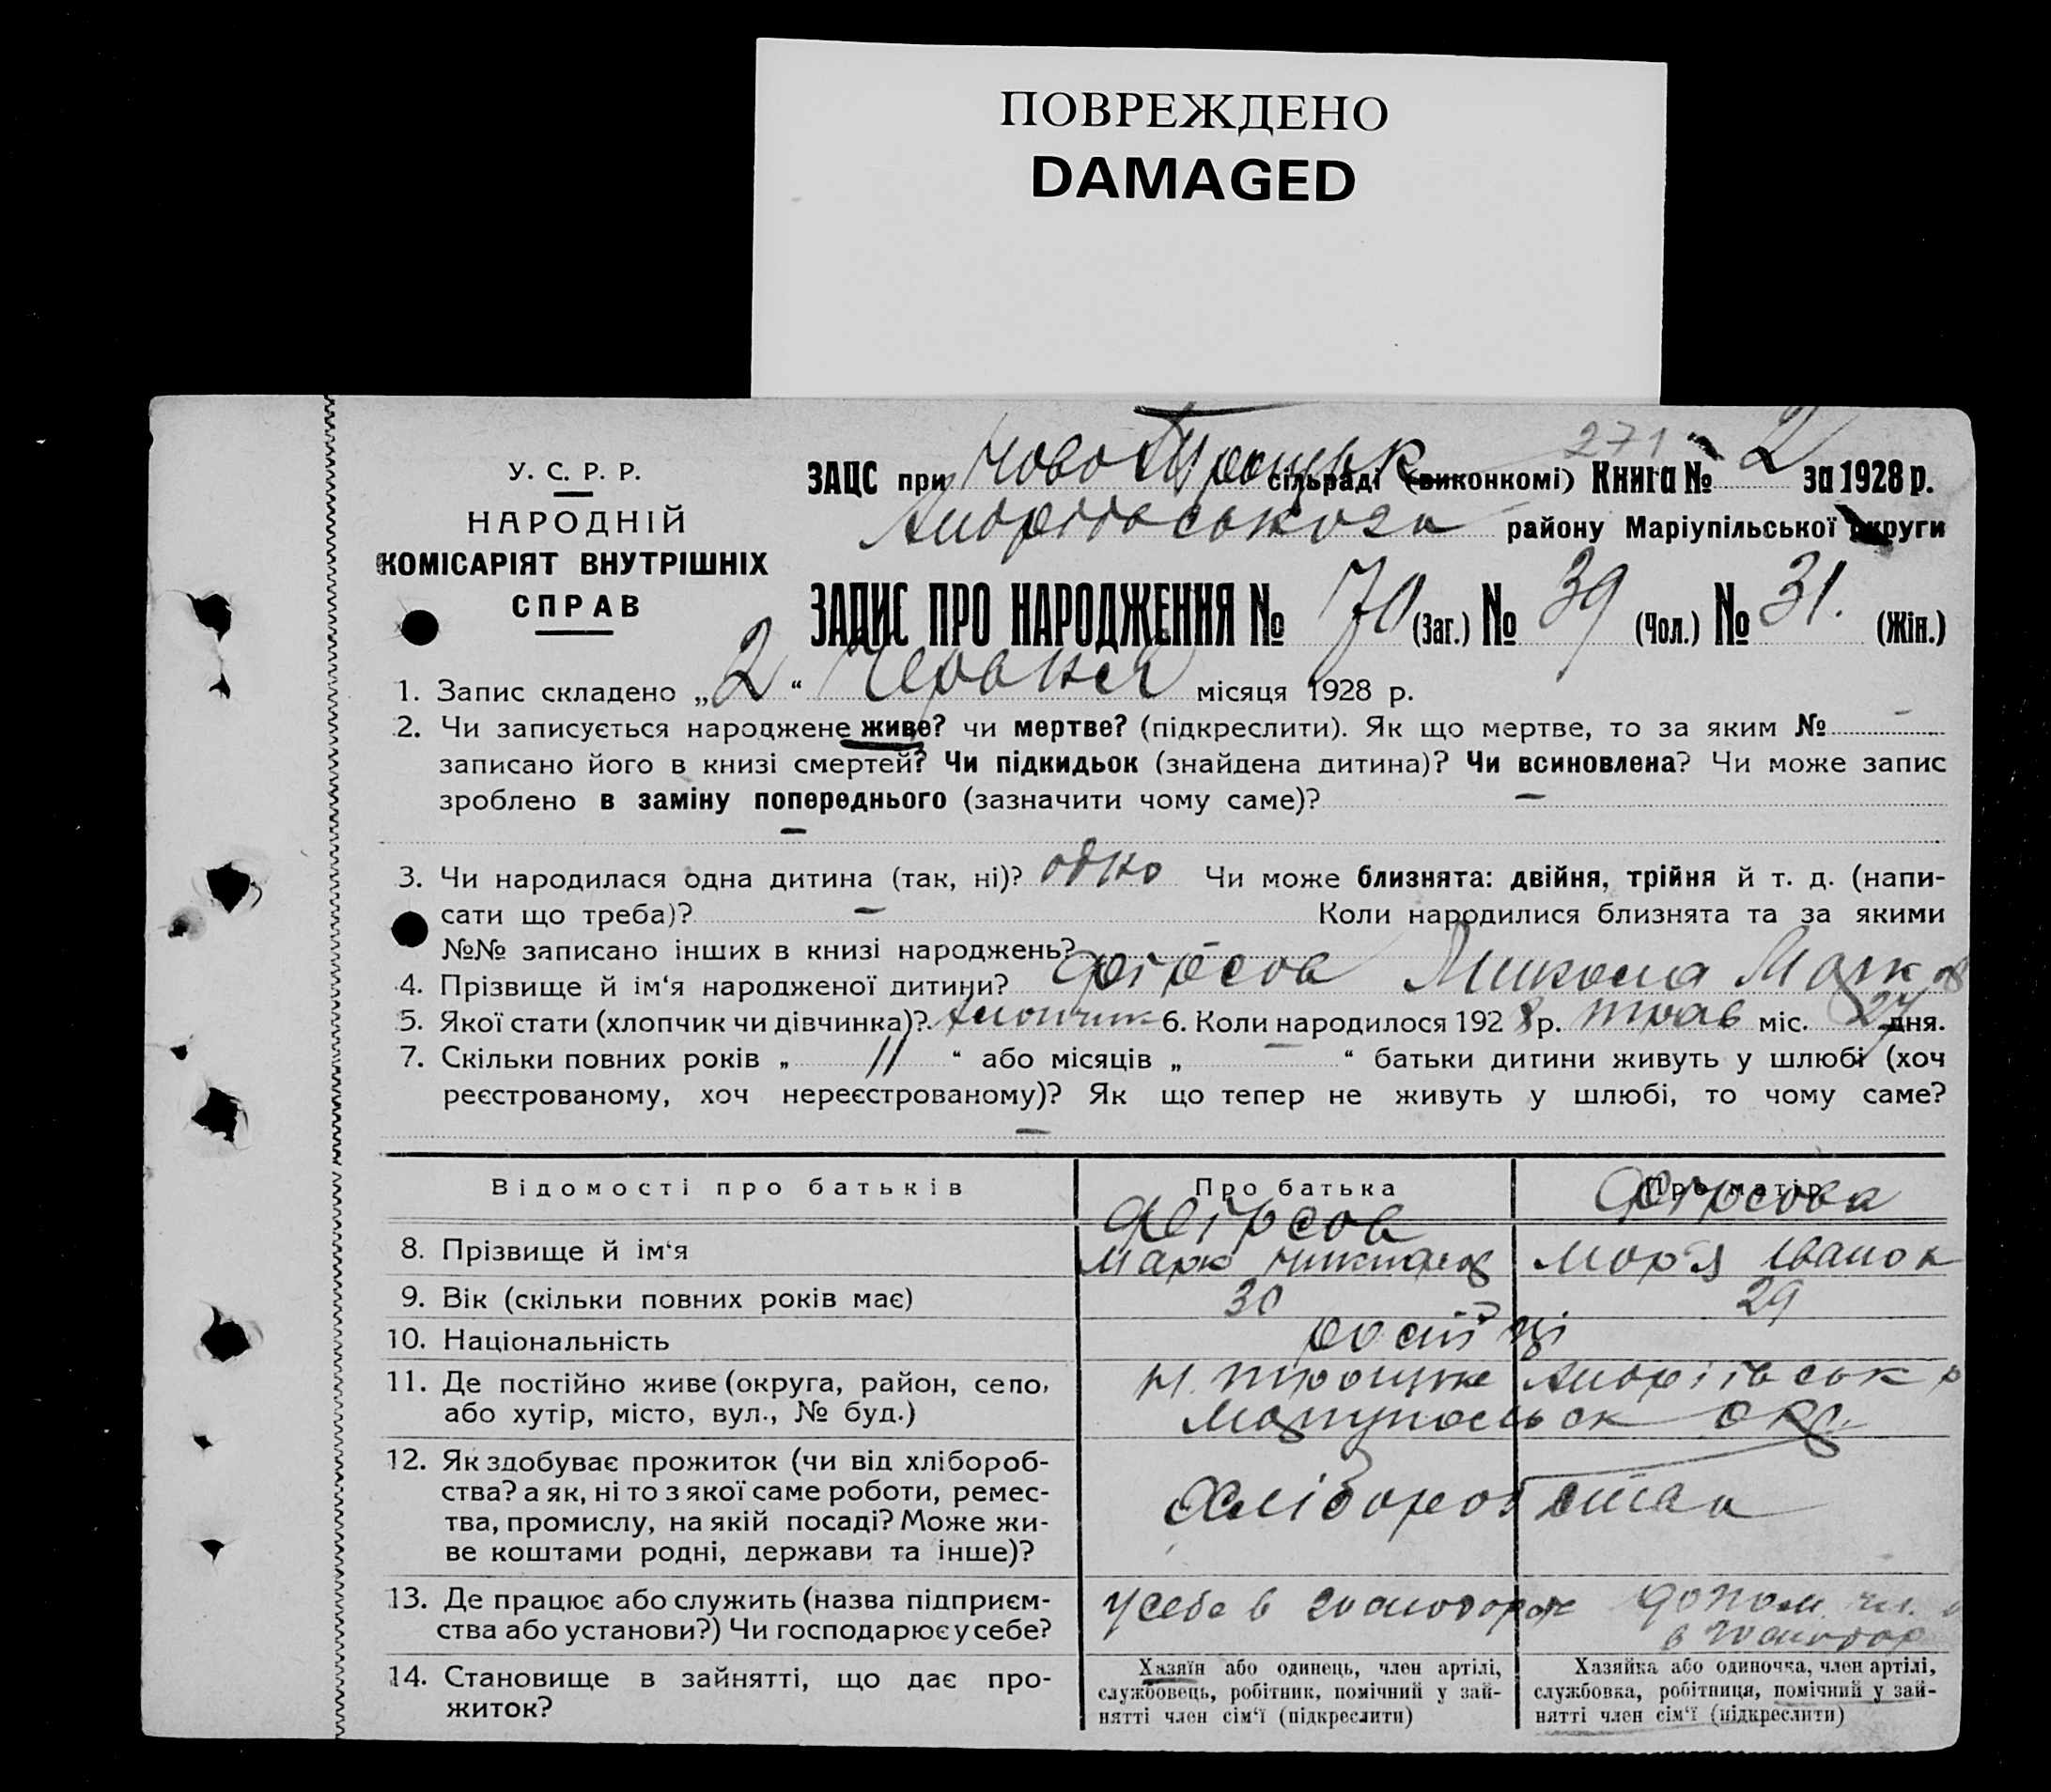 ПОВРЕЖДЕНО
DAMAGED
271
У. С. Р. Р.
НАРОДНІЙ
КОМІСАРІЯТ ВНУТРІШНІХ
СПРАВ
ЗАЦС при Ново Троицьк сільраді (виконкомі) Книга № 2 за 1928 р.
Андріївського району Маріупільської округи
ЗАПИС ПРО НАРОДЖЕННЯ № 70 (Заг.) № 39 (Чол.) № 31. (Жін.)
1. Запис складено „2“ Червня місяця 1928 р.
2. Чи записується народжене живе? чи мертве? (підкреслити). Як що мертве, то за яким № —
записано його в книзі смертей? Чи підкидьок (знайдена дитина)? Чи всиновлена? Чи може запис
зроблено в заміну попереднього (зазначити чому саме)? —
—
3. Чи народилася одна дитина (так, ні)? одно Чи може близнята: двійня, трійня й т. д. (напи-
сати що треба)? — Коли народилися близнята та за якими
№№ записано інших в книзі народжень? —
4. Прізвище й ім‘я народженої дитини? Фірсов Микола Марков
5. Якої стати (хлопчик чи дівчинка)? хлопчик 6. Коли народилося 1928 р. трав міс. 27 дня.
7. Скільки повних років „ 11 “ або місяців „ — “ батьки дитини живуть у шлюбі (хоч
реєстрованому, хоч нереєстрованому)? Як що тепер не живуть у шлюбі, то чому саме?
—
Відомості про батьків Про батька Про матір
Фірсов Фірсова
8. Прізвище й ім‘я Марко Марія Іванов
9. Вік (скільки повних років має) 30 29
10. Національність російці
11. Де постійно живе (округа, район, село, Н. Троицке Андріївськ р
або хутір, місто, вул., № буд.) Маріупольськ окр.
12. Як здобуває прожиток (чи від хлібороб-
ства? а як, ні то з якої саме роботи, ремес- Хліборобства
тва, промислу, на якій посаді? Може жи-
ве коштами родні, держави та інше)?
13. Де працює або служить (назва підприєм- у себе в господар допом. чл.
ства або установи?) Чи господарює у себе? в господар
14. Становище в зайнятті, що дає про-
житок?
Хазяїн або одинець, член артілі,
службовець, робітник, помічний у зай-
нятті член сім‘ї (підкреслити)
Хазяйка або одиночка, член артілі,
службовка, робітниця, помічний у зай-
нятті член сім‘ї (підкреслити)